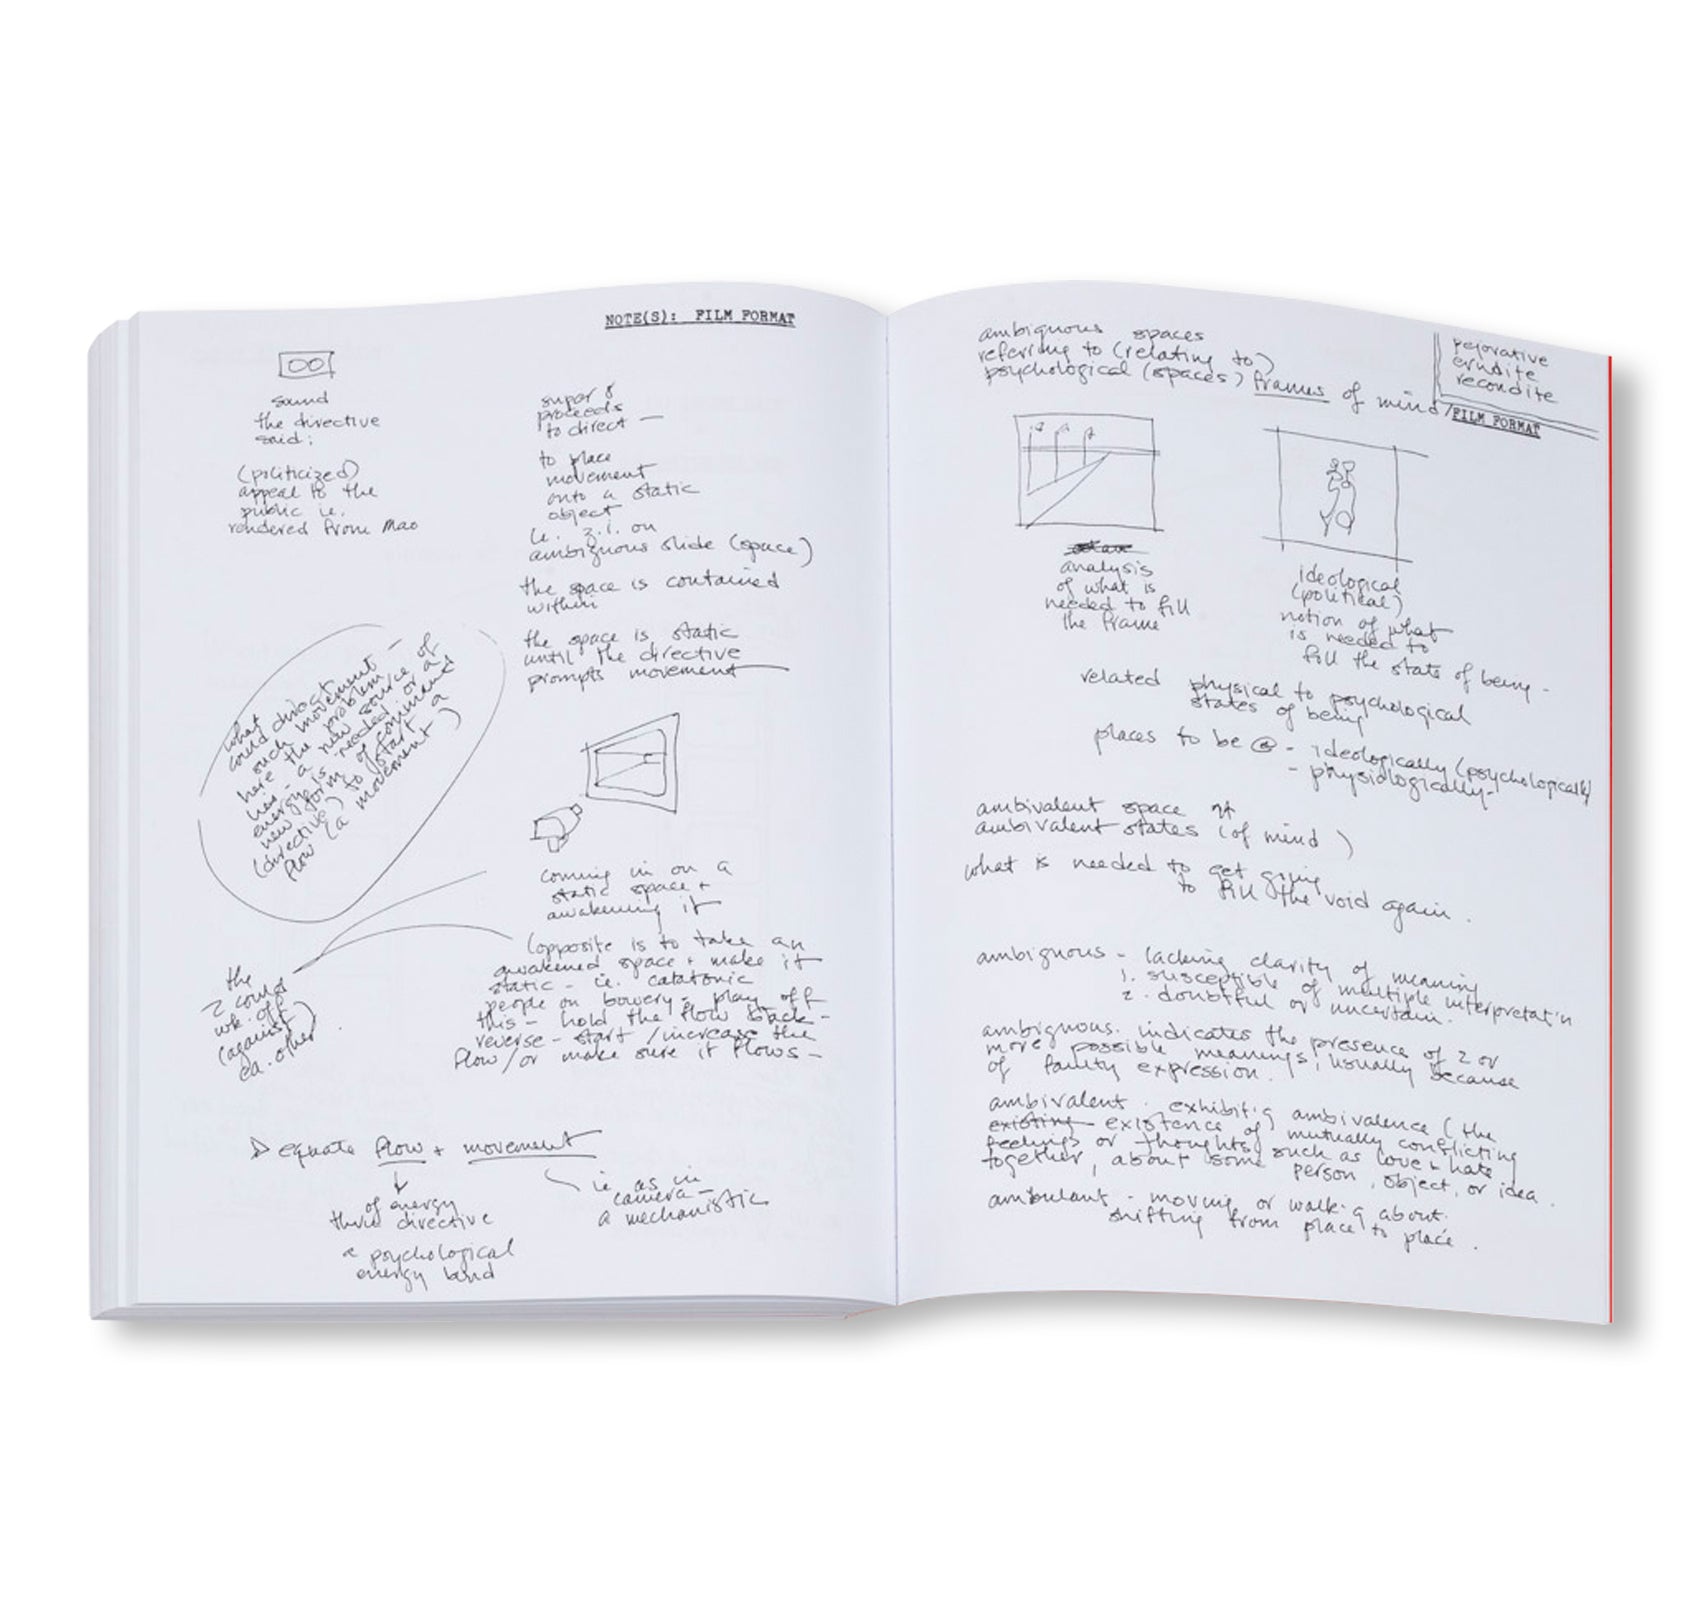 NOTE(S): FILM FORMAT
sound
the directive
said:
(politicized)
appeal to the
public i.e.
rendered from Mao
super 8
proceeds
to direct —
to place
movement
onto a static
object
i.e. z.i. on
ambiguous slide (space)
the space is contained
within
the space is static
until the directive
prompts movement
what
could direct
such movement —
here the problem
lies - a new source of
energy is needed or a
new form of command
(directive) to start a
flow (a movement)
coming in on a
static space +
awakening it
(opposite is to take an
awakened space + make it
static - i.e. catatonic
people on bowery - play off
this - hold the flow back -
reverse - start / increase the
flow / or make sure it flows -
the
2 could
wk. off
(against)
ea. other
equate flow + movement
of energy
thru directive
a psychological
energy band
ie as in
camera -
a mechanistic
ambiguous spaces
referring to (relating to)
psychological (spaces) frames of mind /
pejorative
erudite
recondite
FILM FORMAT
analysis
of what is
needed to fill
the frame
ideological
(political)
notion of what
is needed to
fill the state of being -
related physical to psychological
states of being
places to be @ - ideologically (psychologically)
- physiologically -
ambivalent space
ambivalent states (of mind)
what is needed to get going
to fill the void again.
ambiguous - lacking clarity of meaning
1. susceptible of multiple interpretat'n
2. doubtful or uncertain.
ambiguous. indicates the presence of 2 or
more possible meanings, usually because
of faulty expression.
ambivalent. exhibit'g ambivalence (the
existing existence of mutually conflicting
feelings or thoughts, such as love + hate
together, about some person, object, or idea.
ambulant - moving or walk'g about.
shifting from place to place.